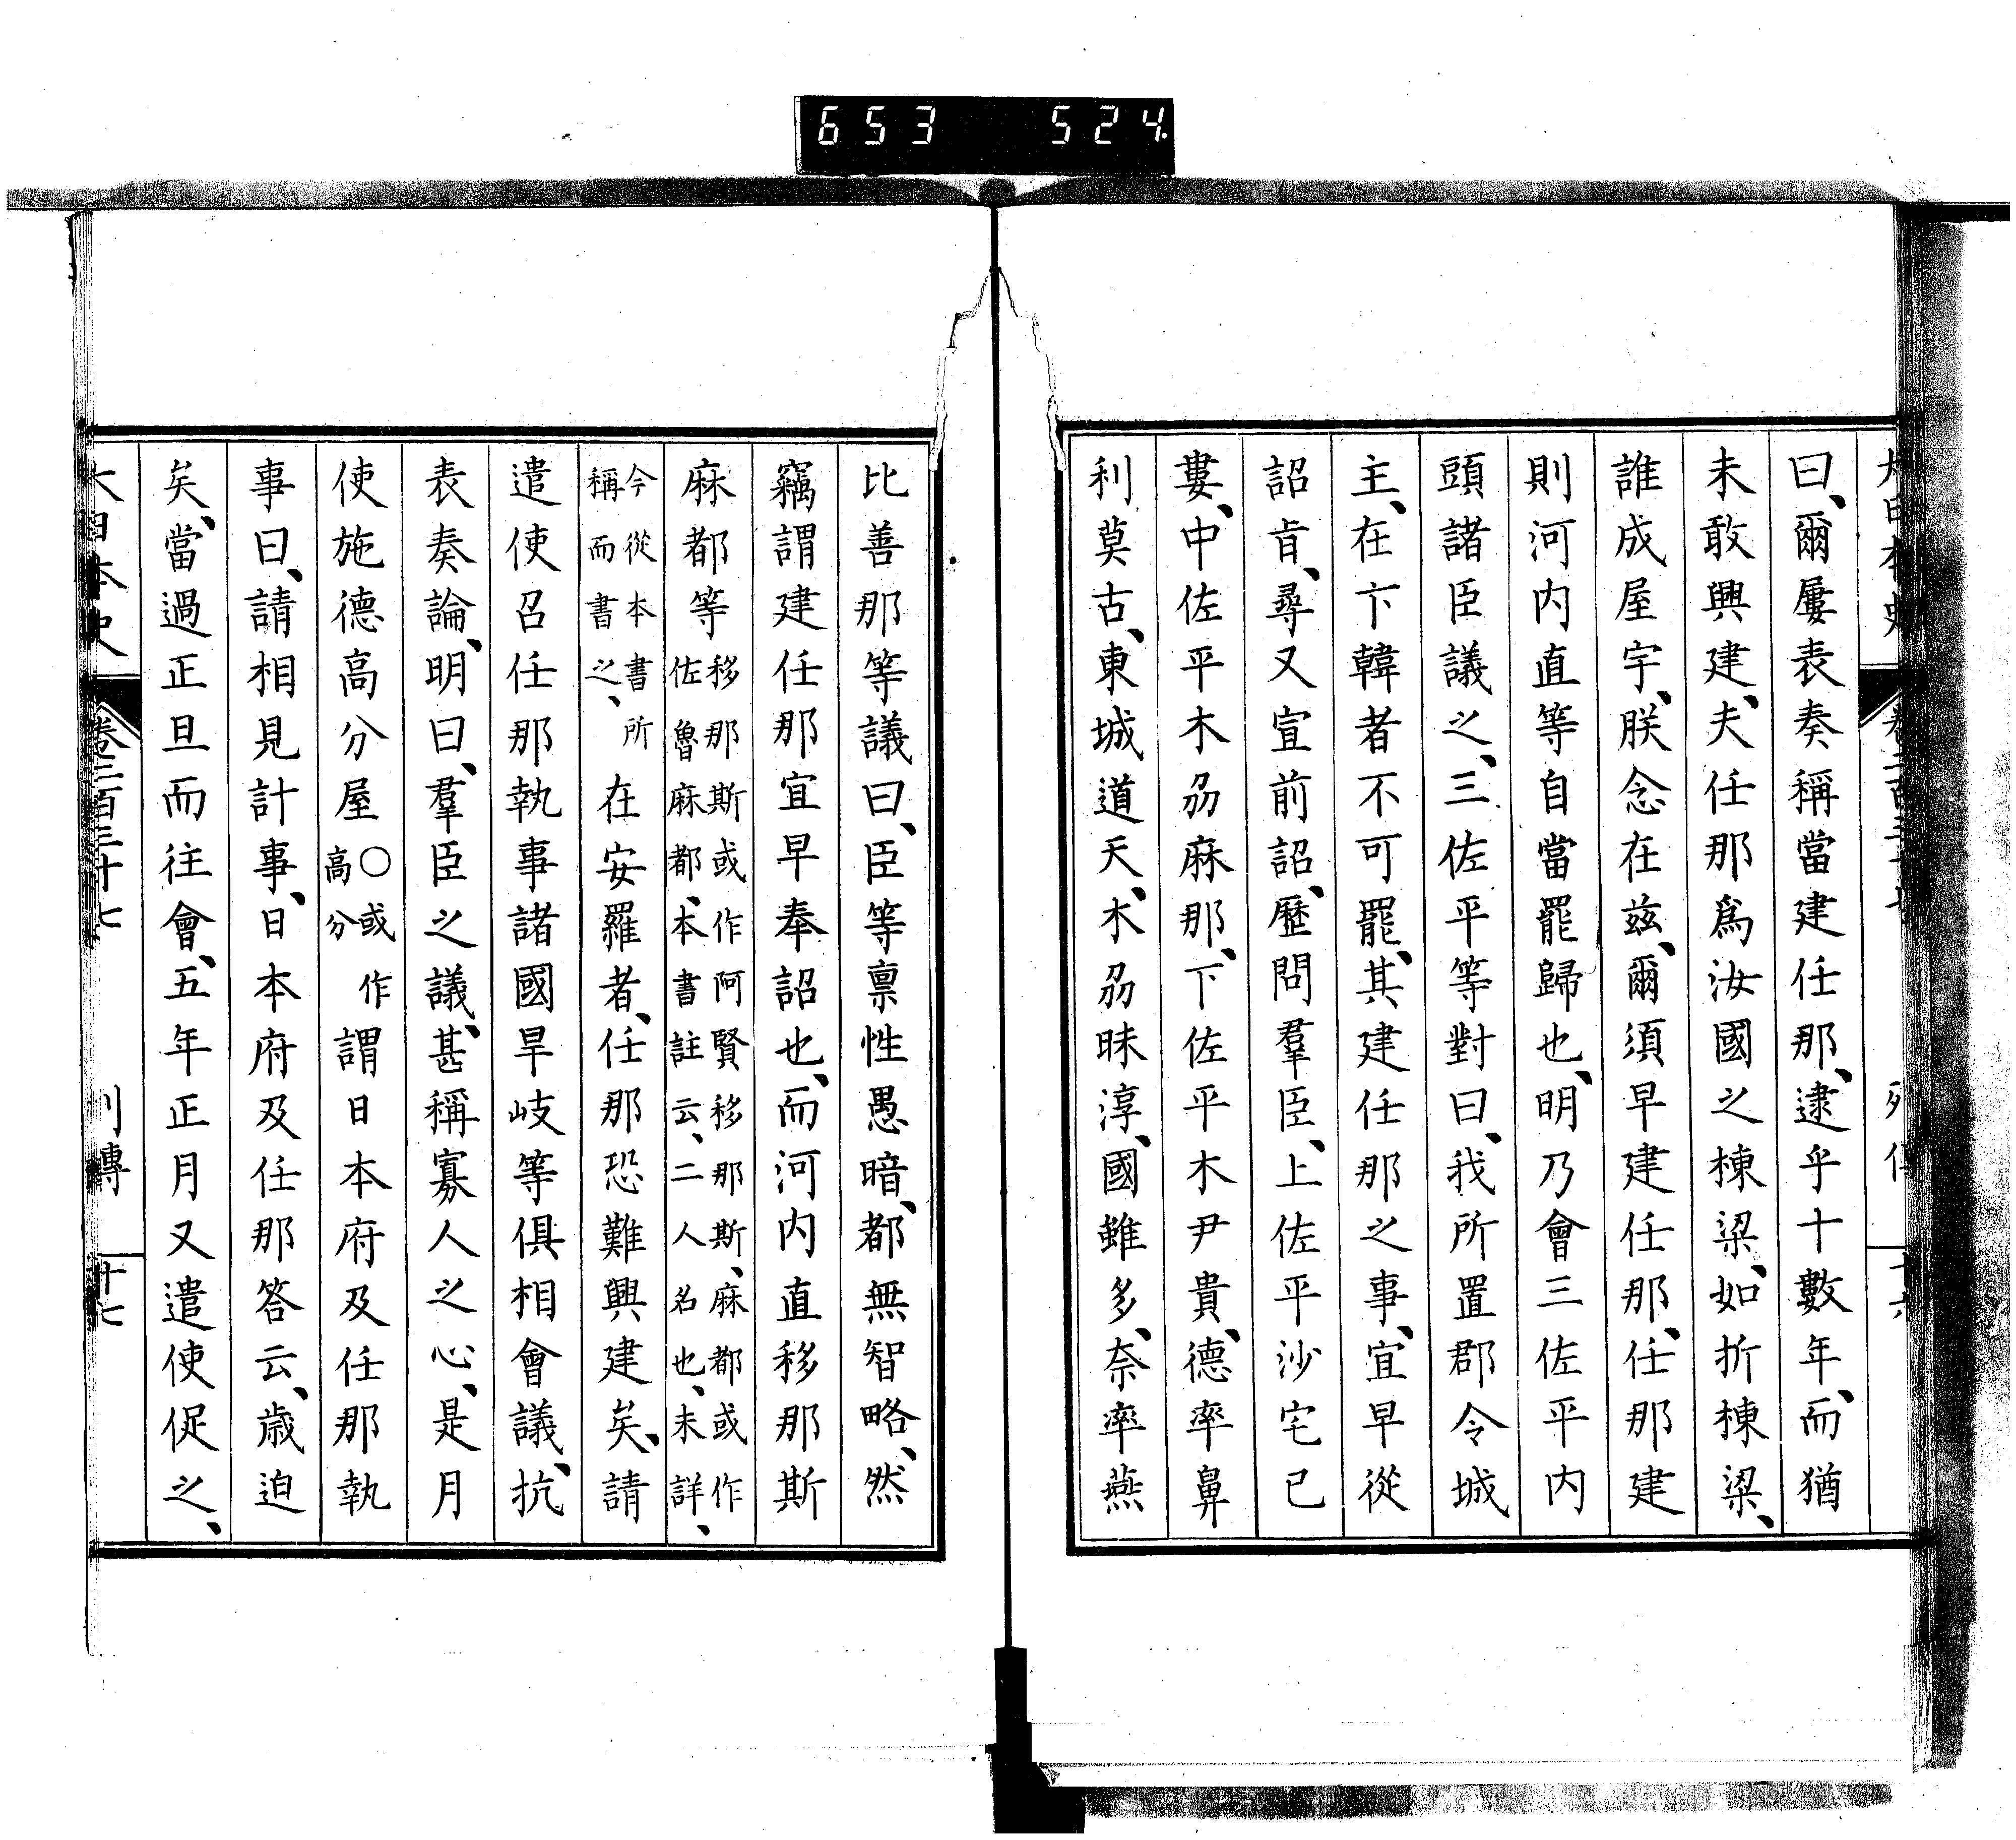 653 524
大日本史 卷二百三十七 列傳 十六
曰、爾屢表奏稱當建任那、逮乎十數年、而猶
未敢興建、夫任那爲汝國之棟梁、如折棟梁、
誰成屋宇、朕念在茲、爾須早建任那、任那建
則河内直等自當罷歸也、明乃會三佐平内
頭諸臣議之、三佐平等對曰、我所置郡令城
主、在卞韓者不可罷、其建任那之事、宜早從
詔肯、尋又宣前詔、歷問羣臣、上佐平沙宅已
婁、中佐平木刕麻那、下佐平木尹貴、德率鼻
利莫古、東城道天、木刕昧淳、國雖多、奈率燕
比善那等議曰、臣等禀性愚暗、都無智略、然
竊謂建任那宜早奉詔也、而河内直移那斯
麻都等移那斯或作阿賢移那斯、麻都或作佐魯麻都、本書註云、二人名也、未詳、
今從本書所稱而書之、在安羅者、任那恐難興建矣、請
遣使召任那執事諸國旱岐等俱相會議、抗
表奏論、明曰、羣臣之議、甚稱寡人之心、是月
使施德高分屋○或作高分謂日本府及任那執
事曰、請相見計事、日本府及任那答云、歲迫
矣、當過正旦而往會、五年正月又遣使促之、
大日本史 卷二百三十七 列傳 十七